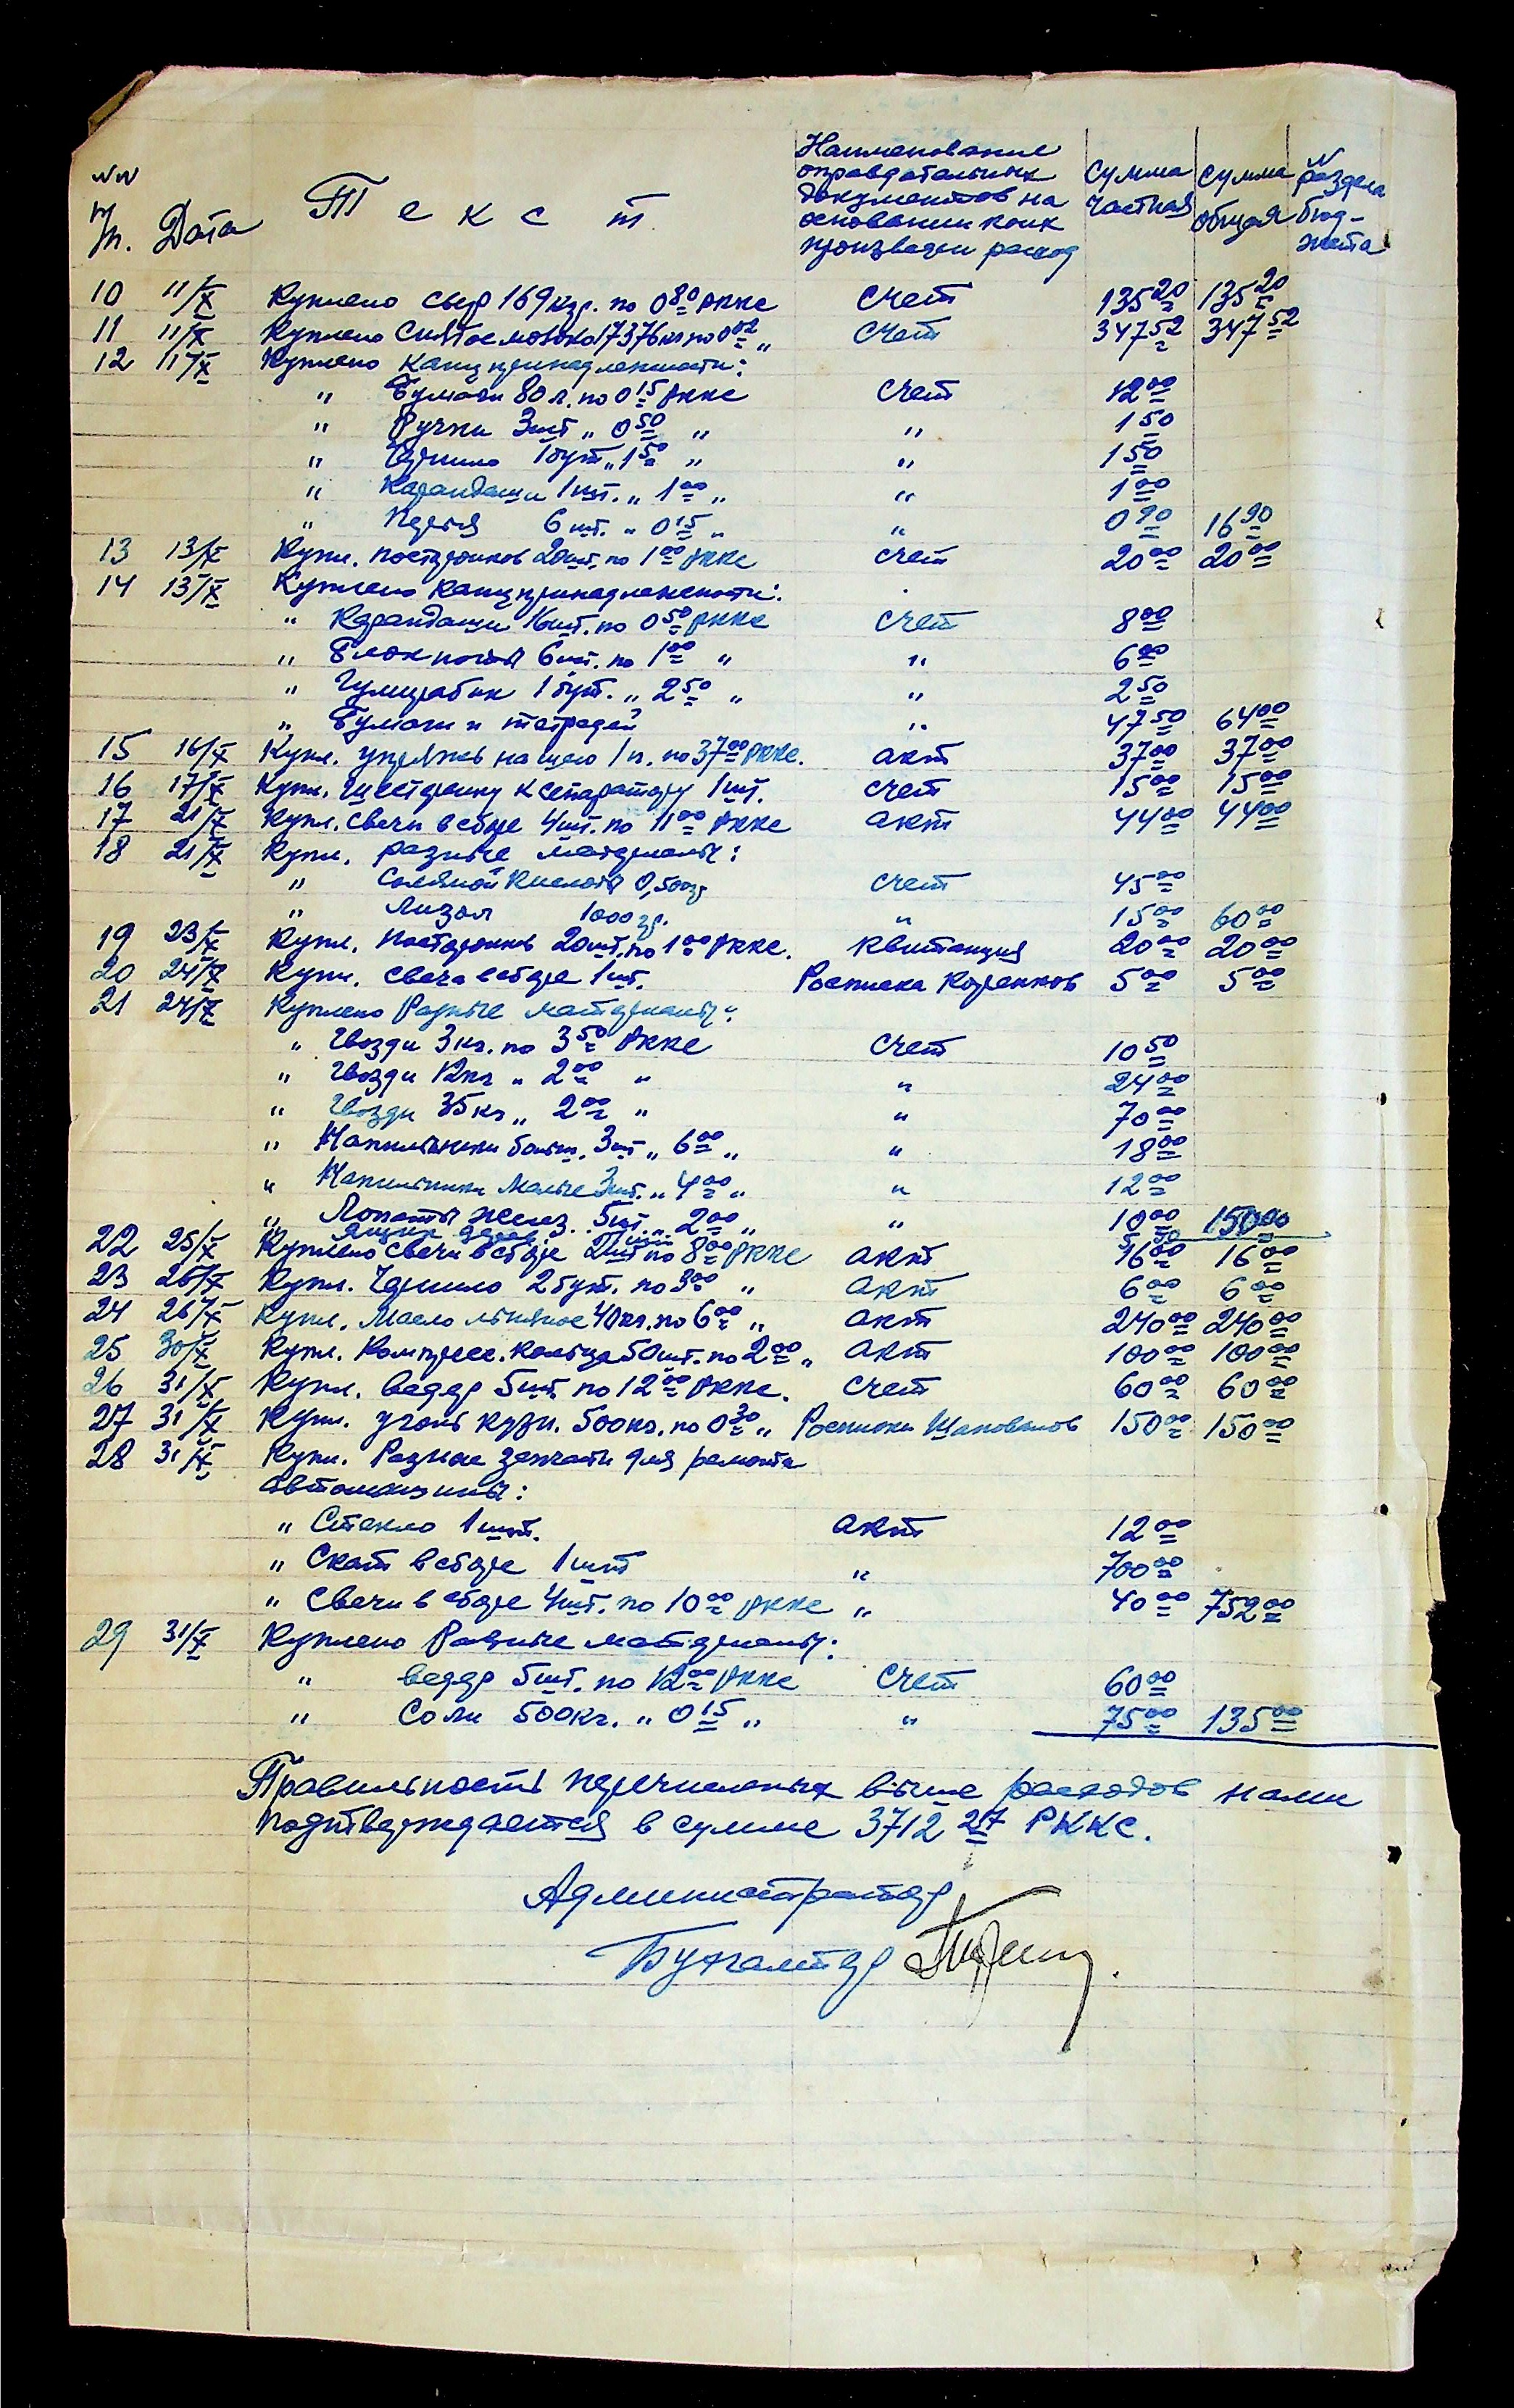 NN
п/п. Дата Текст Наименование оправдательных документов на основании коих произведен расход Сумма частная Сумма общая N раздела бюджета
10 11/X Куплено сыр 169 кгр. по 0 80 РККС Счет 135 20 135 20
11 11/X Куплено Снятое молоко 17376 кг по 0 02 " Счет 347 52 347 52
12 11/X Куплено Канцпринадлежности:
" Бумаги 80 л. по 0 15 РККС Счет 12 00
" Ручки 3 шт " 0 50 " " 1 50
" Чернило 1 бут. " 1 50 " " 1 50
" Карандаши 1 шт. " 1 00 " " 1 00
" Перья 6 шт. " 0 15 " " 0 90 16 90
13 13/X Купл. постромков 20 шт. по 1 00 РККС Счет 20 00 20 00
14 13/X Куплено Канцпринадлежности:
" Карандаши 16 шт. по 0 50 РККС Счет 8 00
" Блокноты 6 шт. по 1 00 " " 6 00
" Гумиарабик 1 бут. " 2 50 " " 2 50
" Бумаги и тетрадей " 47 50 64 00
15 16/X Купл. упряжь на шею 1 п. по 37 00 РККС. Акт 37 00 37 00
16 17/X Купл. Шестеренку к сепаратору 1 шт. Счет 15 00 15 00
17 21/X Купл. свечи в сборе 4 шт. по 11 00 РККС Акт 44 00 44 00
18 21/X Купл. разные материалы:
" Соляной Кислоты 0,500 гр Счет 45 00
" Лизол 1000 гр. " 15 00 60 00
19 23/X Купл. Постромки 20 шт. по 1 00 РККС. Квитанция 20 00 20 00
20 24/X Купл. свеча в сборе 1 шт. Росписка Коренков 5 00 5 00
21 24/X Куплено Разные материалы:
" Гвозди 3 кг. по 3 50 РККС Счет 10 50
" Гвозди 12 кг " 2 00 " " 24 00
" Гвозди 35 кг " 2 00 " " 70 00
" Напильники больш. 3 шт " 6 00 " " 18 00
" Напильники Малые 3 шт. " 4 00 " " 12 00
" Лопаты желез. 5 шт. " 2 00 " " 10 00 150 00
22 25/X Куплено свечи в сборе 2 шт по 8 00 РККС Акт 16 00 16 00
23 26/X Купл. Чернило 2 бут. по 3 00 " Акт 6 00 6 00
24 26/X Купл. Масло льняное 40 кг. по 6 00 " Акт 240 00 240 00
25 30/X Купл. Компресс. Кольца 50 шт. по 2 00 " Акт 100 00 100 00
26 31/X Купл. ведер 5 шт. по 12 00 РККС. Счет 60 00 60 00
27 31/X Купл. уголь кузн. 500 кг. по 0 30 " Росписки Шаповалов 150 00 150 00
28 31/X Купл. Разные запчасти для ремонта
автомашины:
" Стекло 1 шт. Акт 12 00
" Скат в сборе 1 шт " 700 00
" Свечи в сборе 4 шт. по 10 00 РККС " 40 00 752 00
29 31/X Куплено Разные материалы:
" ведер 5 шт. по 12 00 РККС Счет 60 00
" Соли 500 кг. " 0 15 " " 75 00 135 00
Правильность перечисленых выше расходов нами
подтверждается в сумме 3712 27 РККС.
Администратор
Бухгалтер